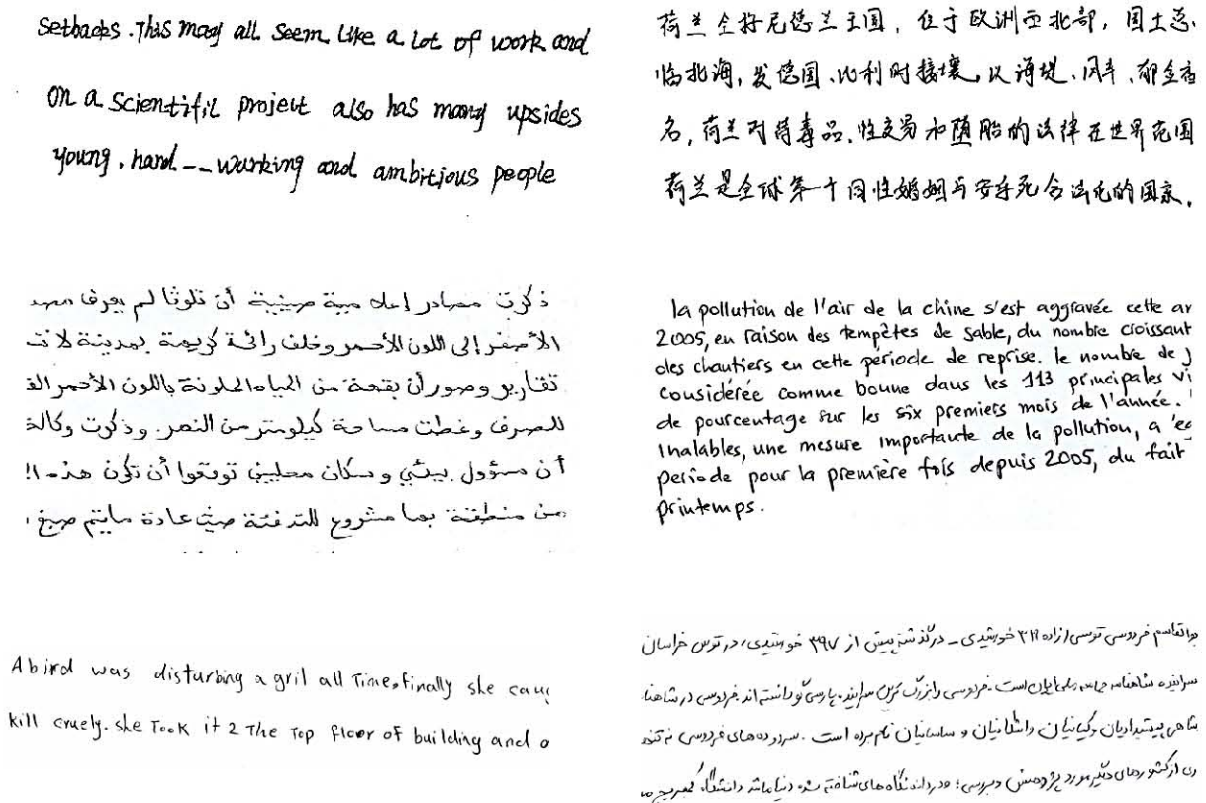 setbacks. This many all seem like a lot of work and
on a scientific project also has many upsides
young, hard -- working and ambitious people
荷兰全称尼德兰王国, 位于欧洲西北部, 国土总
临北海, 与德国、比利时接壤, 以海堤、风车、郁金香
名, 荷兰对待毒品、性交易和堕胎的法律在世界范围
荷兰是全球第一个同性婚姻与安乐死合法化的国家.
ذكرت مصادر إعلامية صينية أن تلوثا لم يعرف مصد
الأصفر إلى اللون الأحمر وخلف رائحة كريهة بمدينة لانت
تقارير وصور أن بقعة من المياه الملونة باللون الأحمر الق
للصرف وغطت مساحة كيلومتر من النهر. وذكرت وكالة
أن مسؤول بيئي وسكان محليين توقعوا أن تكون هذه ال
من منطقة بها مشروع للتدفئة حيث عادة مايتم صبغ
la pollution de l'air de la chine s'est aggravée cette an
2005, en raison des tempêtes de sable, du nombre croissant
des chantiers en cette période de reprise. le nombre de j
considérée comme bonne dans les 113 principales vi
de pourcentage sur les six premiers mois de l'année.
Inalables, une mesure importante de la pollution, a
periode pour la première fois depuis 2005, du fait
printemps.
A bird was disturbing a gril all Time, finally she cau
kill cruely. she Took it 2 The Top floor of building and
فردوسی توسی زاده ۳۱۹ خورشیدی - درگذشته پیش از ۳۹۷ خورشیدی، در توس خراسان
سراینده شاهنامه حماسه ملی ایران است. فردوسی را بزرگ ترین سراینده پارسی گو دانسته اند. فردوسی در شاهنا
شاهی پیشدادیان و کیانیان و اشکانیان و ساسانیان نام برده است. سروده های فردوسی نه تنه
کشورهای دیگر مورد پژوهش و بررسی؛ و در دانشگاه های شناخته شده دنیا مانند دانشگاه کمبریج